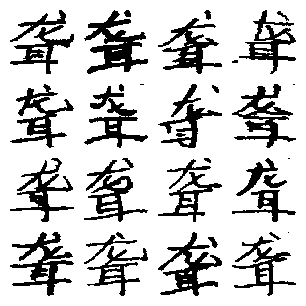 聋聋聋聋
聋聋聋聋
聋聋聋聋
聋聋聋聋